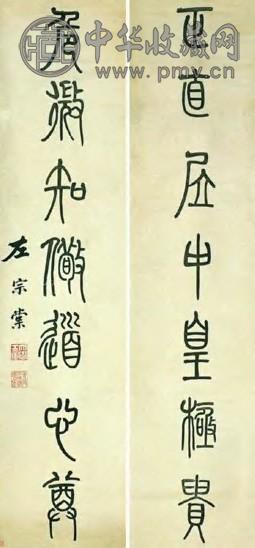 中华收藏网
www.pmv.cn
正直居中皇極貴
危微知儆道心尊
左宗棠